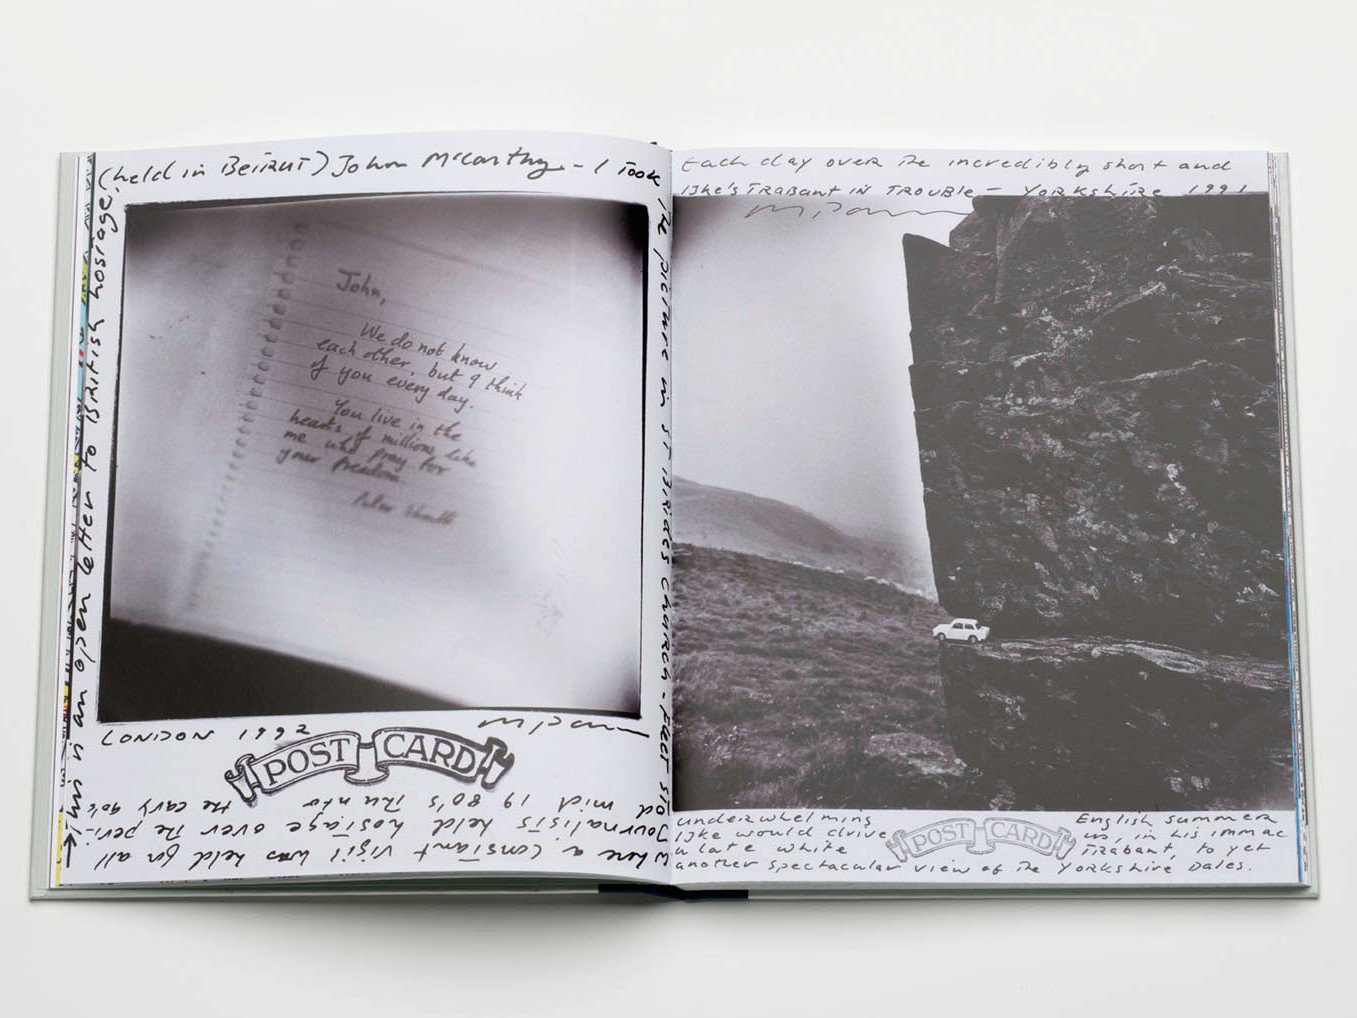 This is an open letter to British hostage
(held in BEIRUT) John McCarthy - I took
the picture in ST BRIDES Church - Fleet St
where a constant vigil was held for all
Journalists held hostage over the peri-
od mid 1980's thru to the early 90's
John,
We do not know
each other, but I think
of you every day.
You live in the
hearts of millions like
me who pray for
your freedom.
LONDON 1992
POST CARD
Each day over the incredibly short and
IJke's TRABANT IN TROUBLE - YORKSHIRE 1991
underwhelming English summer
IJke would drive us, in his immac
ulate white Trabant, to yet
another spectacular view of the Yorkshire Dales.
POST CARD